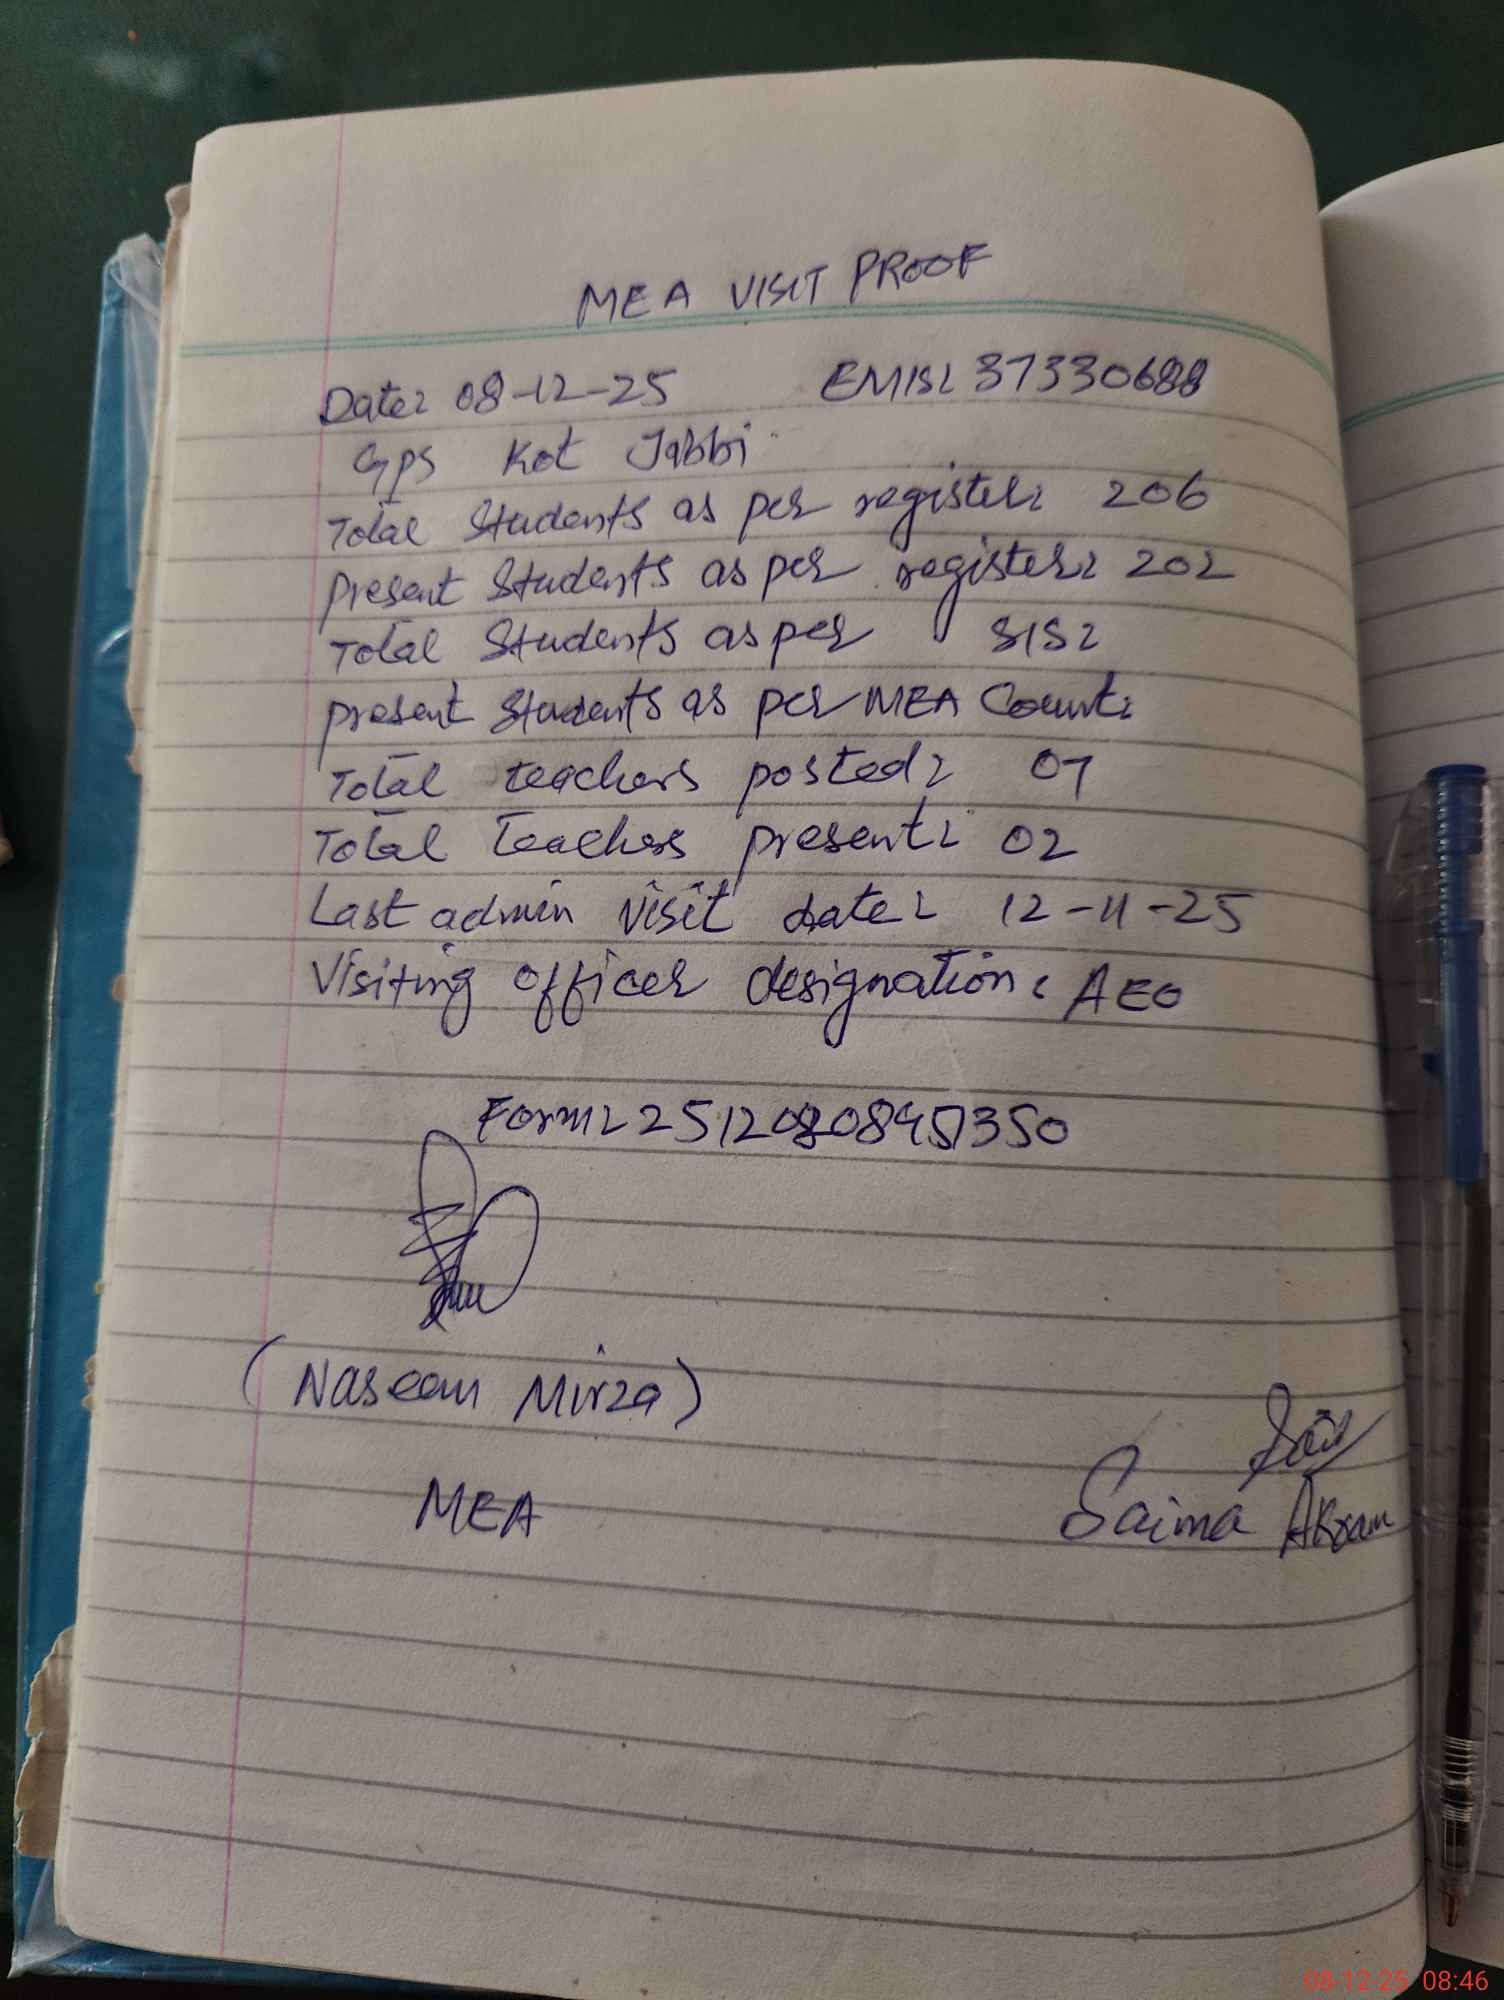 MEA VISIT PROOF
Date: 08-12-25 EMIS: 37330688
GPS Kot Jabbi
Total Students as per register: 206
Present Students as per register: 202
Total Students as per SIS:
Present Students as per MEA Count:
Total teachers posted: 07
Total Teachers present: 02
Last admin visit date: 12-11-25
Visiting officer designation: AEO
Form: 25120808451350
(Naseem Mirza)
MEA
Saima Akram
08-12-25 08:46